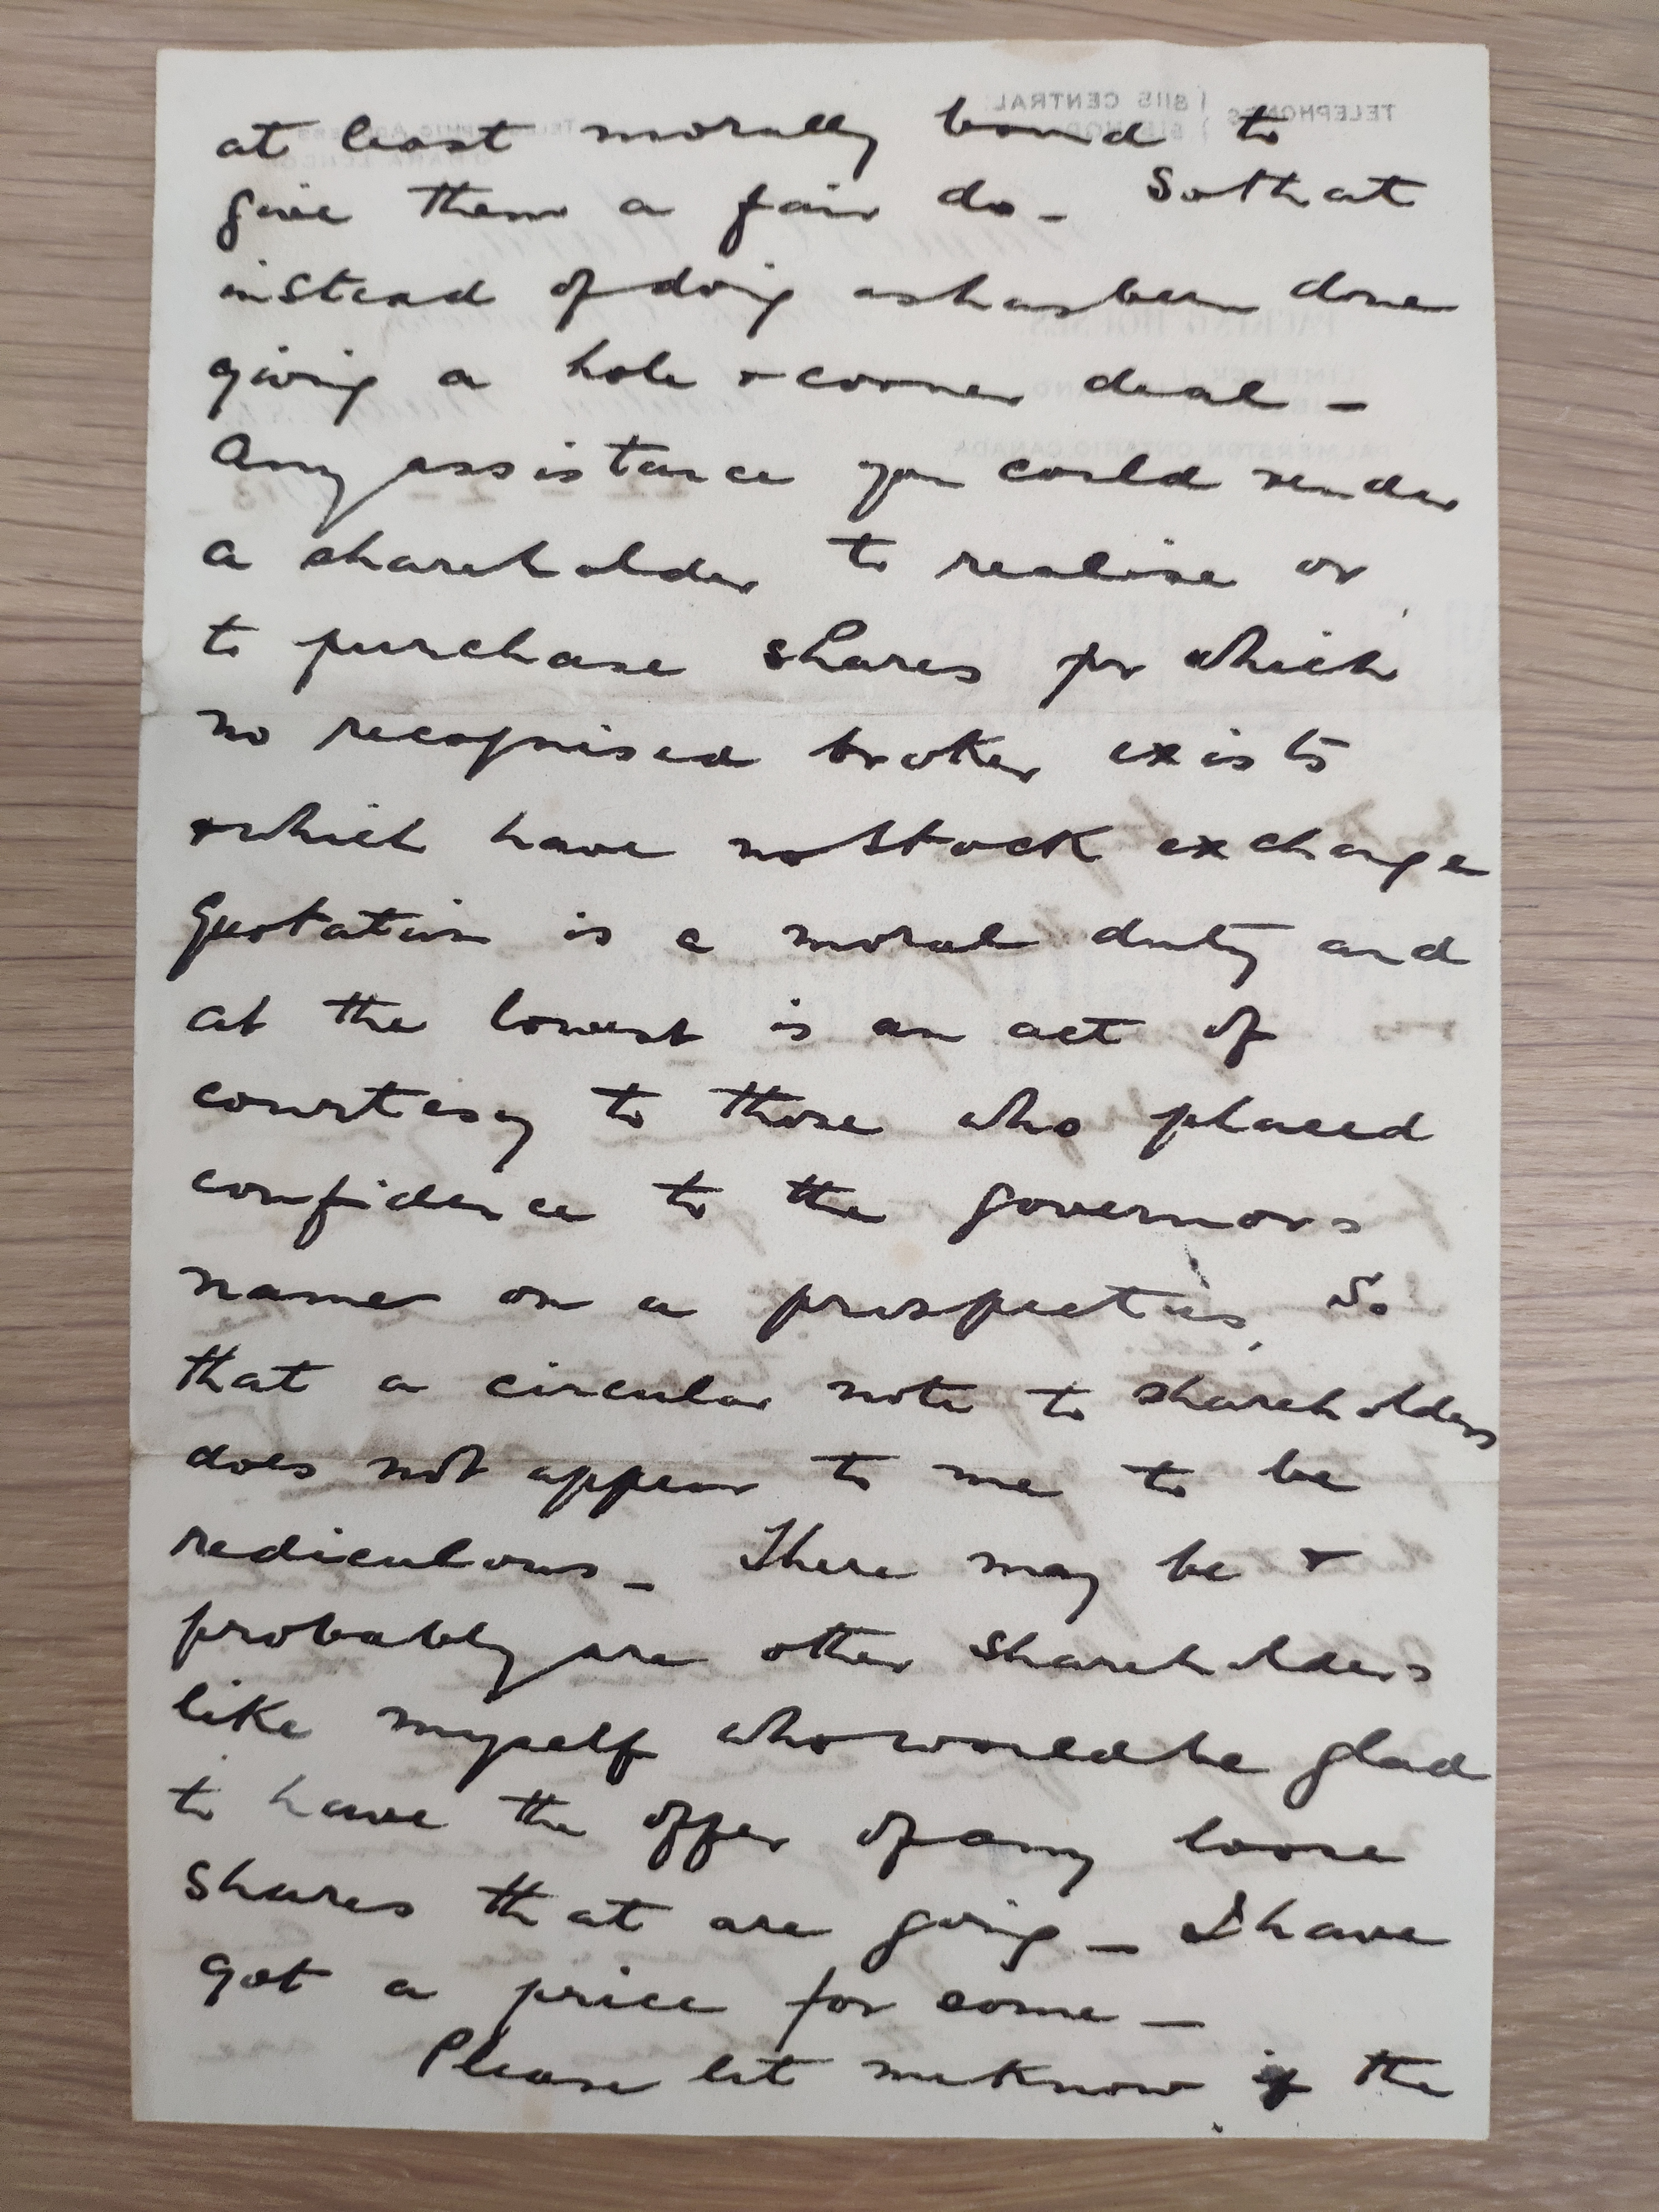 at least morally bound to
give them a fair do - So that
instead of doing as has been done
giving a hole & corner deal -
Any assistance you could render
a shareholder to realise or
to purchase shares for which
no recognised broker exists
& which have no Stock exchange
Quotation is a moral duty and
at the lowest is an act of
courtesy to those who placed
confidence to the governors
name on a prospectus, So
that a circular note to shareholders
does not appear to me to be
rediculous - There may be &
probably are other shareholders
like myself who would be glad
to have the offer of any loose
shares that are going - I have
got a price for some -
Please let me know if the